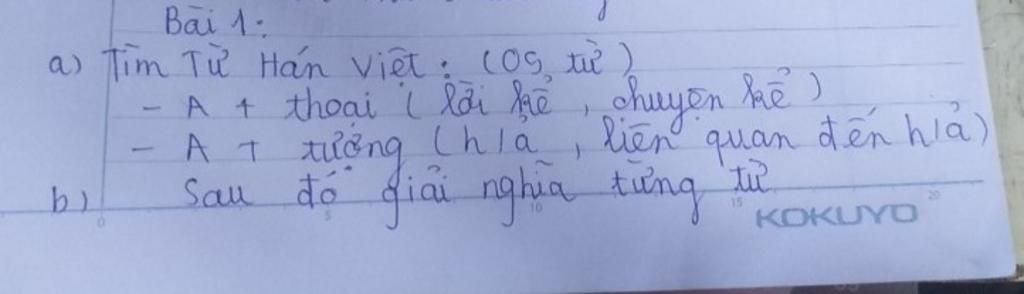 Bài 1:
a) Tìm Từ Hán Việt: (05 từ)
- A + thoại (lời kể, chuyện kể)
- A + tượng (h/ả, liên quan đến h/ả)
b) Sau đó giải nghĩa từng từ
0 5 10 15 20
KOKUYO